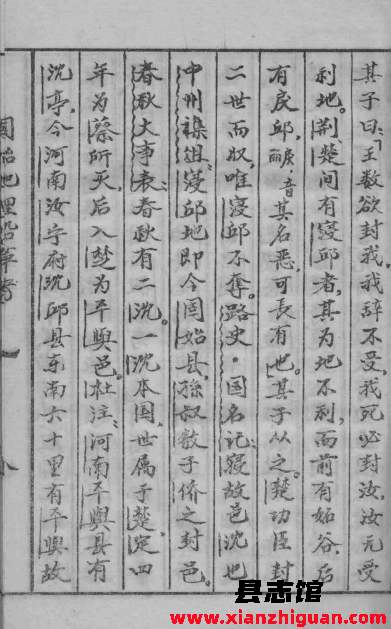 其子曰:「王数欲封我,我辞不受,我死必封汝,汝无受
利地。荆楚间有寝邱者,其为地不利,而前有妬谷,后
有戾邱,其名恶,可長有也。其子从之。楚功臣封
二世而収,唯寝邱不奪。路史·国名记:寝故邑沈也
中州襍俎:寝邱地即今固始县,孫叔敖子侨之封邑。
春秋大事表:春秋有二沈。一沈本国,世属于楚,定四
年为蔡所灭,后入楚为平舆邑。杜注:河南平舆县有
沈亭,今河南汝宁府沈邱县东南六十里有平舆故
固始地理沿革考
一
县志馆
www.xianzhiguan.com